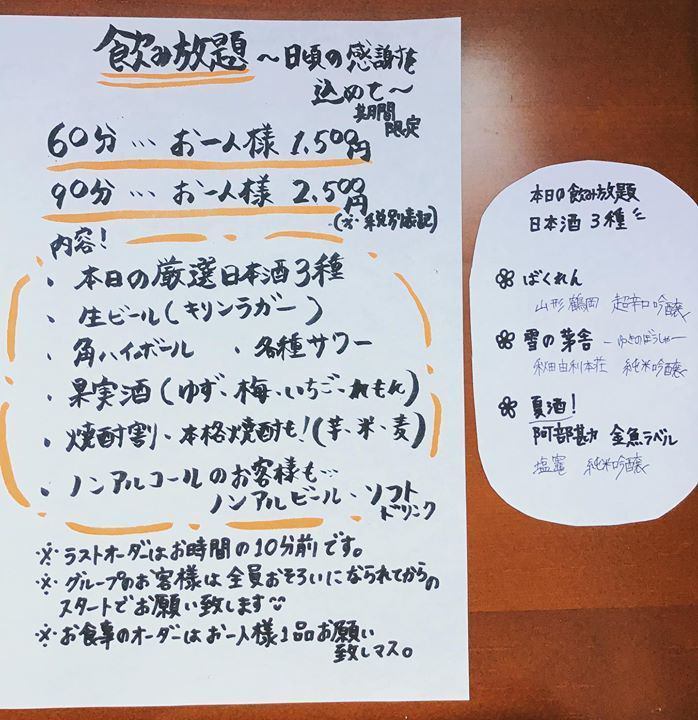 飲み放題 〜日頃の感謝を
込めて〜
期間
限定
60分 … お一人様 1,500円
90分 … お一人様 2,500円
(※税別表記)
内容!
・本日の厳選日本酒3種
・生ビール(キリンラガー)
・角ハイボール ・各種サワー
・果実酒(ゆず、梅、いちご、れもん)
・焼酎割・本格焼酎も!(芋、米、麦)
・ノンアルコールのお客様も…
ノンアルビール・ソフト
ドリンク
※ラストオーダーはお時間の10分前です。
※グループのお客様は全員おそろいになられてからの
スタートでお願い致します
※お食事のオーダーはお一人様1品お願い
致しマス。
本日の飲み放題
日本酒3種
ばくれん
山形鶴岡 超辛口吟醸
雪の茅舎 -ゆきのぼうしゃ-
秋田由利本荘 純米吟醸
夏酒!
阿部勘 金魚ラベル
塩竈 純米吟醸